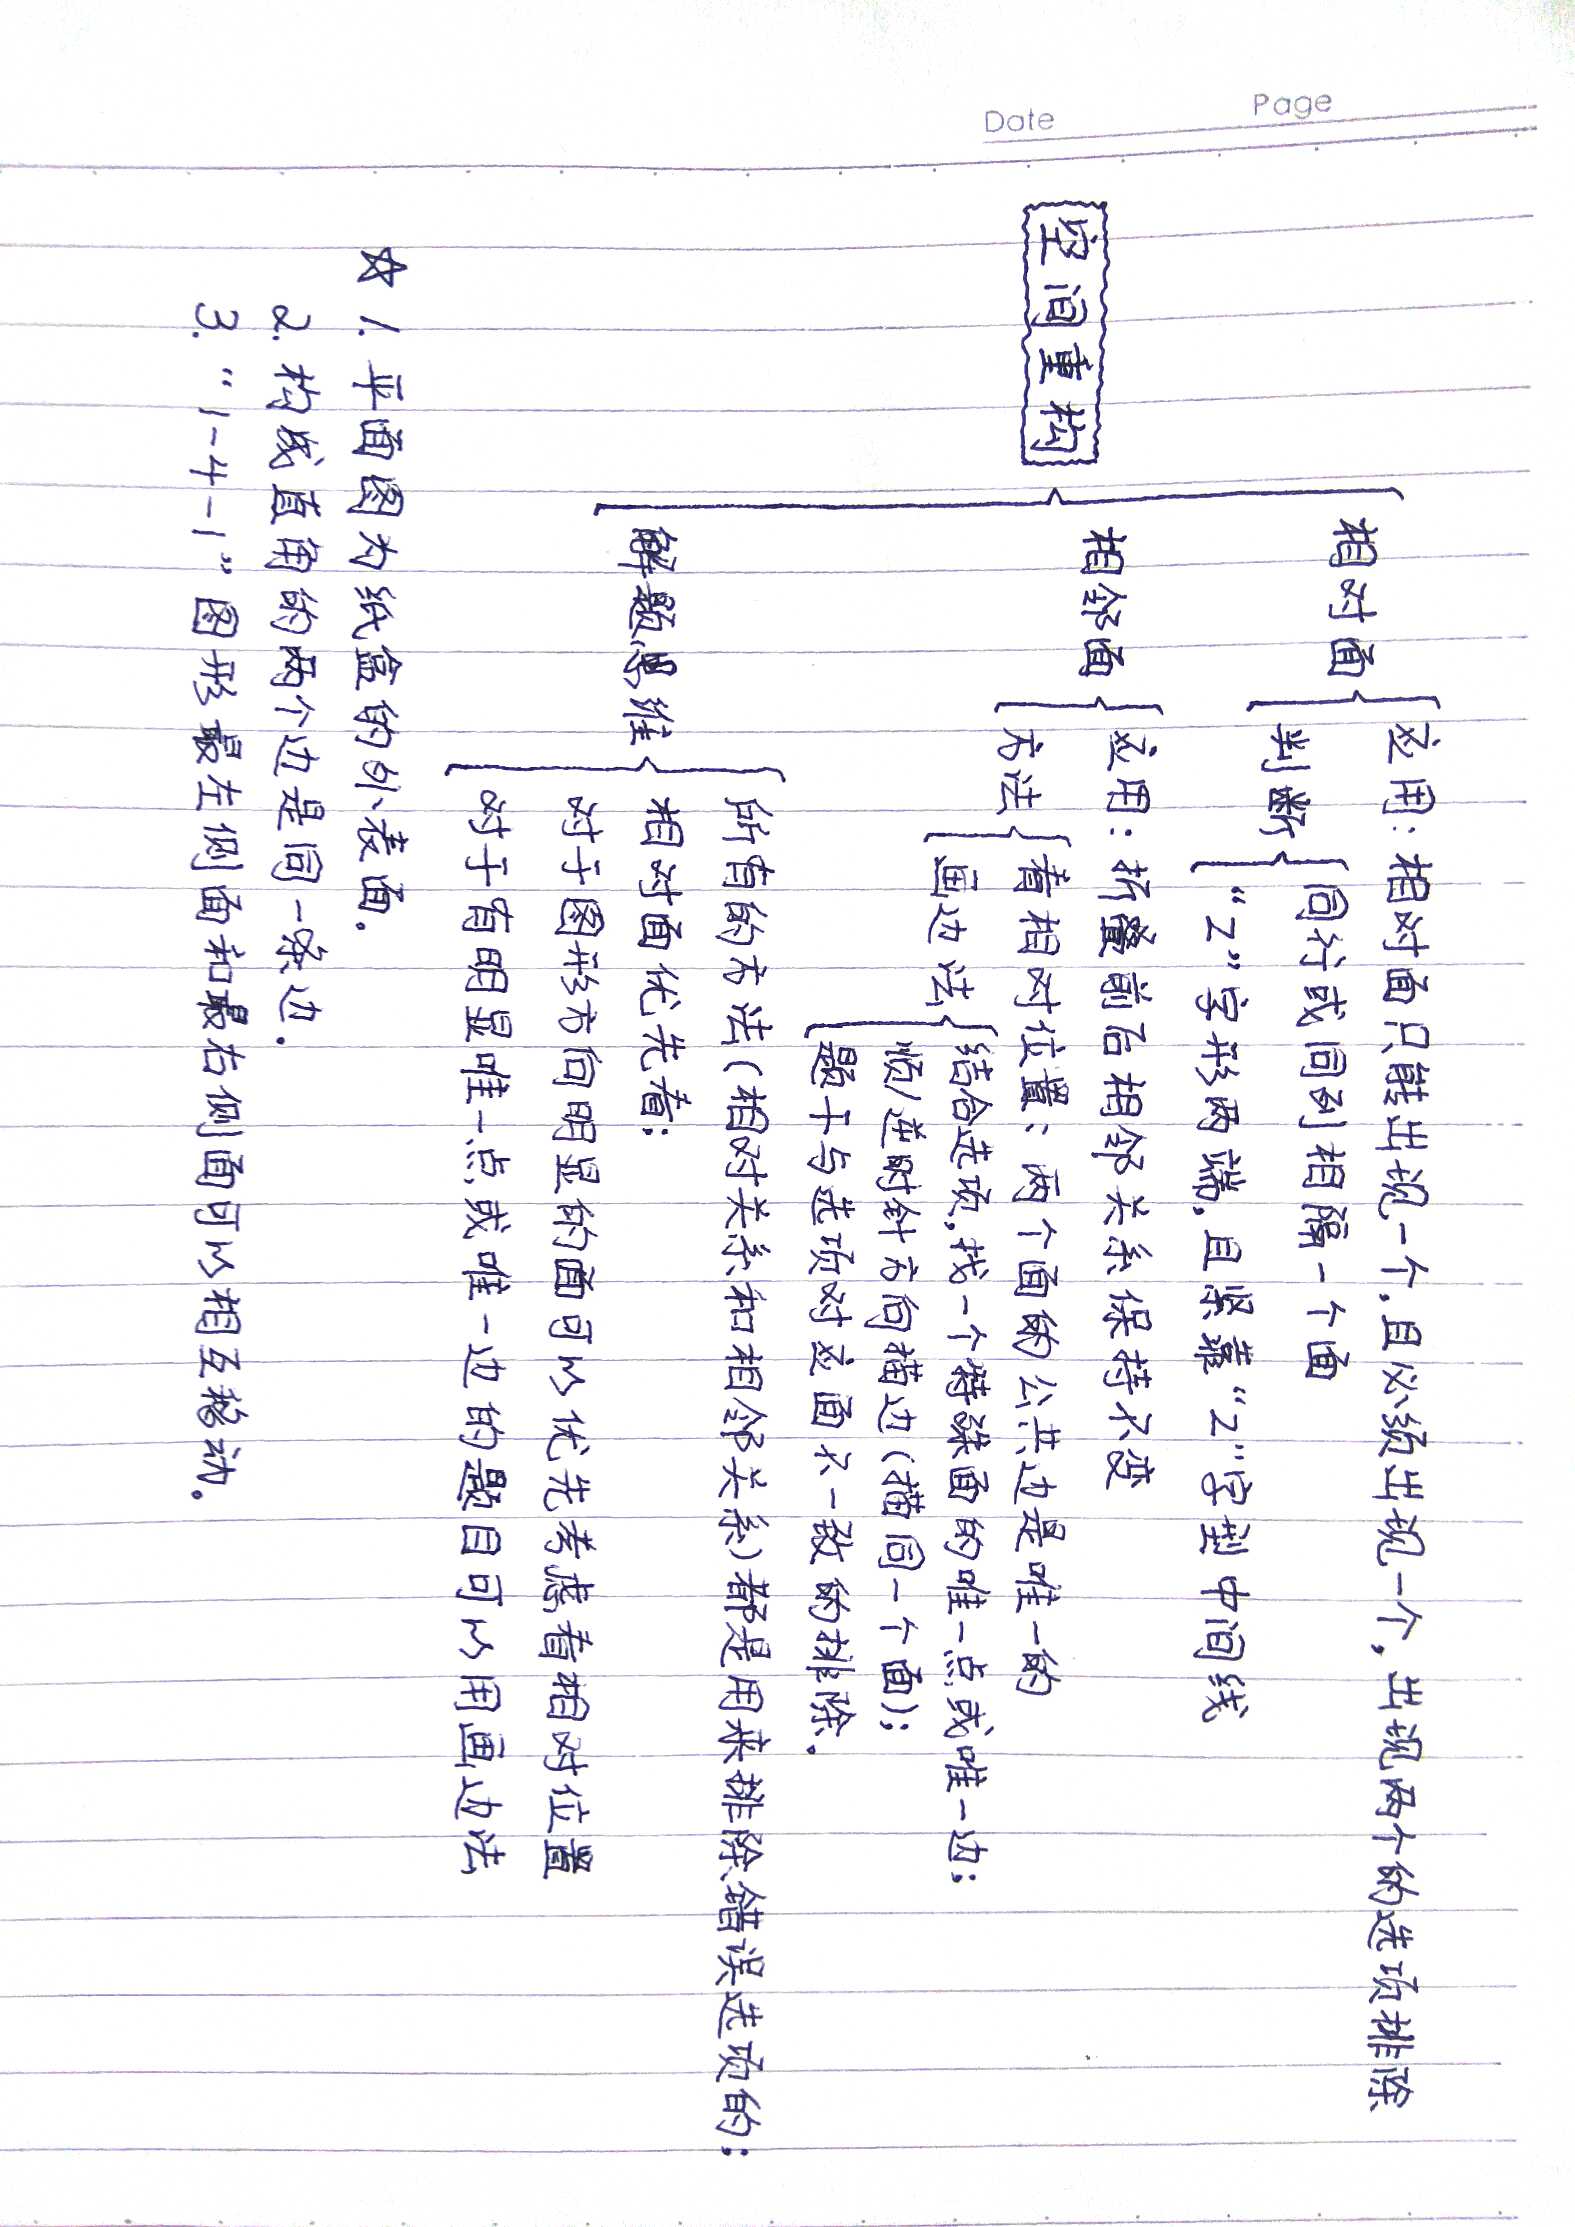 Date Page
空间重构
相对面
应用：相对面只能出现一个，且必须出现一个，出现两个的选项排除
判断
同行或同列相隔一个面
“Z”字形两端，且紧靠“Z”字型中间线
相邻面
应用：折叠前后相邻关系保持不变
方法
看相对位置：两个面的公共边是唯一的
画边法
结合选项，找一个特殊面的唯一点或唯一边；
顺/逆时针方向描边（描同一个面）；
题干与选项对应面不一致的排除．
解题思维
所有的方法（相对关系和相邻关系）都是用来排除错误选项的；
相对面优先看；
对于图形方向明显的面可以优先考虑看相对位置
对于有明显唯一点或唯一边的题目可以用画边法
☆ 1. 平面图为纸盒的外表面．
2. 构成直角的两个边是同一条边．
3. “1-4-1”图形最左侧面和最右侧面可以相互移动．